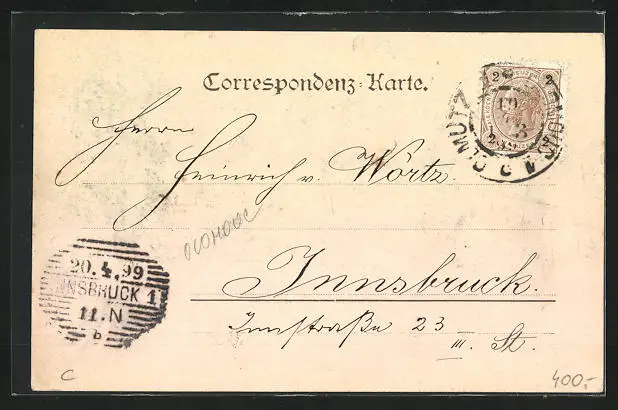 Correspondenz-Karte.
Herrn
Heinrich v. Wörtz.
OLOMOUC
Innsbruck.
Innstraße 23
III. St.
20.4.99
INNSBRUCK 1
11.N
b
OLMÜTZ
2
2
2
C
400,-